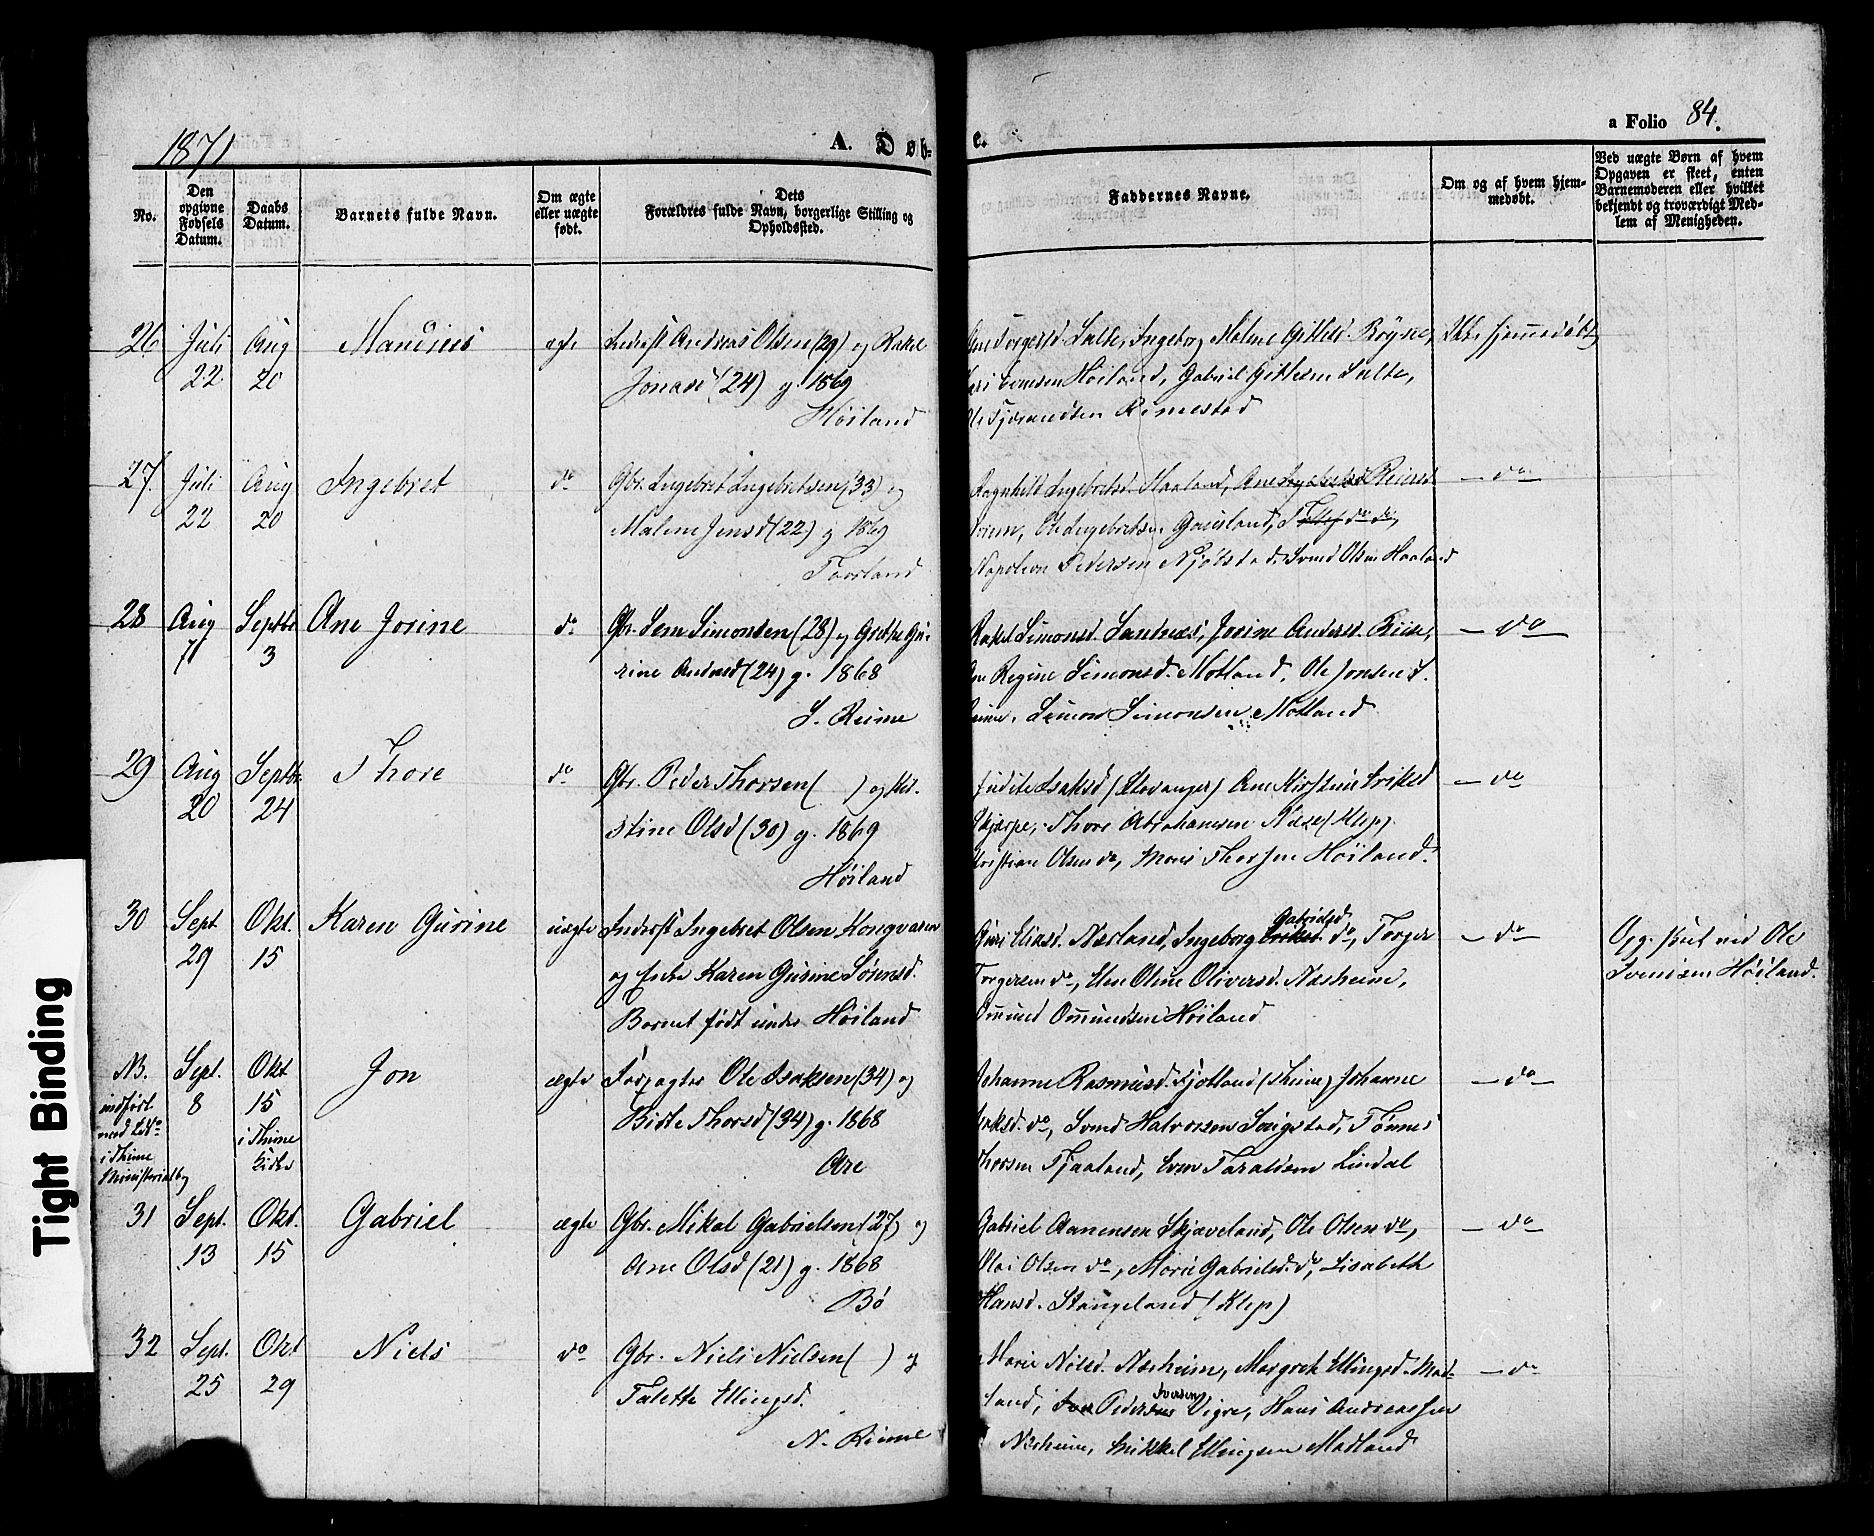 1871
A. Døb-
e.
a Folio 84.
No.
Den
opgivne
Fødsels
Datum.
Daabs
Datum.
Barnets fulde Navn.
Om ægte
eller uægte
født.
Dets
Forældres fulde Navn, borgerlige Stilling og
Opholdssted.
Faddernes Navne.
Om og af hvem hjem-
medøbt.
Ved uægte Børn af hvem
Opgaven er skeet, enten
Barnemoderen eller hvilket
bekjendt og troværdigt Med-
lem af Menigheden.
26 Juli Aug Mauritius ægte Inderst Andreas Olsen (29) og Rakel
22 20 Jonasd (24) g. 1869
Høiland
Salte, Ingeborg Malene Gitlesd. Brÿne, Ikke hjemmedøbt
Høiland, Gabriel Gitlesen Salte,
Rimestad
27. Juli Aug Ingebret do Gbr. Ingebret Ingebretsen (33) og
22 20 Malene Jensd (22) g 1869
Taarland
Ragnhild Ingebretsd. Haaland, Ane
Ole Ingebretsen Gausland, Tollef do do,
Napoleon Pedersen Njølstad, Svend Olsen Haaland
- do -
28 Aug Septbr Ane Josine do Gbr. Sem Simonsen (28) og Grethe Gu-
7 3 rine Andersd (24) g. 1868
S. Reime
Rakel Simonsd. Sandnes, Josine Andersd. Riise,
Regine Simonsd. Motland, Ole Jonsen S.
Simon Simonsen Motland
- do -
29 Aug Septbr Thore do Gbr. Peder Thorsen ( ) og Kri-
20 24 stine Olsd (30) g. 1869
Høiland
(Stavanger) Ane Kirstine
Thore Abrahamsen Næse (Klep)
Kristian Olsen do, Mons Thorsen Høiland.
- do
30 Sept Okt. Karen Gurine uægte Inderst Ingebret Olsen Kongvarden
29 15 og Enke Karen Gurine Sørensd.
Barnet født under Høiland
Guri Eliasd. Nærland, Ingeborg Gabrielsd. do, Torger
Torgersen do, Elen Oline Oliversd. Nærheim,
Omund Omundsen Høiland
- do -
Opg. skeet ved Ole
Svendsen Høiland.
NB.
indført
med Lit a
i Thime
Ministerialbog
Sept. Okt Jon ægte Forpagter Ole Isaksen (34) og
8 15 Birte Thorsd (34) g. 1868
i Thime
Kirke
Are
Johanne Rasmusd. Fjotland (Thime) Johanne
Isaksd. do, Svend Halvorsen Serigstad, Tønnes
Thorsen Tjaaland, Sven Taraldsen Lindal
- do -
31 Sept. Okt. Gabriel ægte Gbr. Mikal Gabrielsen (27) og
13 15 Ane Olsd (21) g. 1868
Bø
Gabriel Aanensen Skjæveland, Ole Olsen do,
Olai Olsen do, Marie Gabrielsd. do, Lisabeth
Hansd. Stangeland (Klep)
- do -
32 Sept. Okt Niels do Gbr. Niels Nielsen ( ) og
25 29 Talette Ellingsd.
N. Reime
Marie Nilsd. Nærheim, Margrete Ellingsd. Mad-
land, Peder Iversen Vigre, Hans Andreassen
Nærheim, Mikkel Ellingsen Madland
- do
Tight Binding